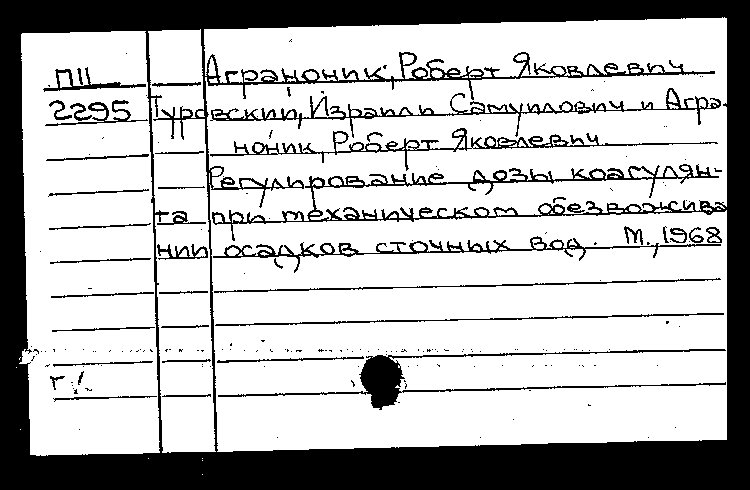 П11 Агранοник, Роберт Яковлевич
2295 Туровский, Израиль Самуилович и Агра-
ноник, Роберт Яковлевич.
Регулирование дозы коагулян-
та при механическом обезвожива
нии осадков сточных вод. М., 1968